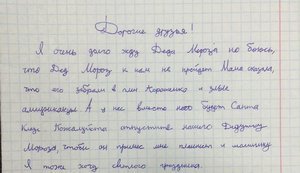 Дорогие друзья!
Я очень долго жду Деда Мороза но боюсь,
что Дед Мороз к нам не прийдет Мама сказала,
что его забрали в плен Кораненко и злые
американцы А у нас вместо него будет Санта
Клаус Пожалуйста отпустите нашего Дедушку
Мороза, чтобы он принес мне планшет и машинку
Я тоже хочу светлого праздника.